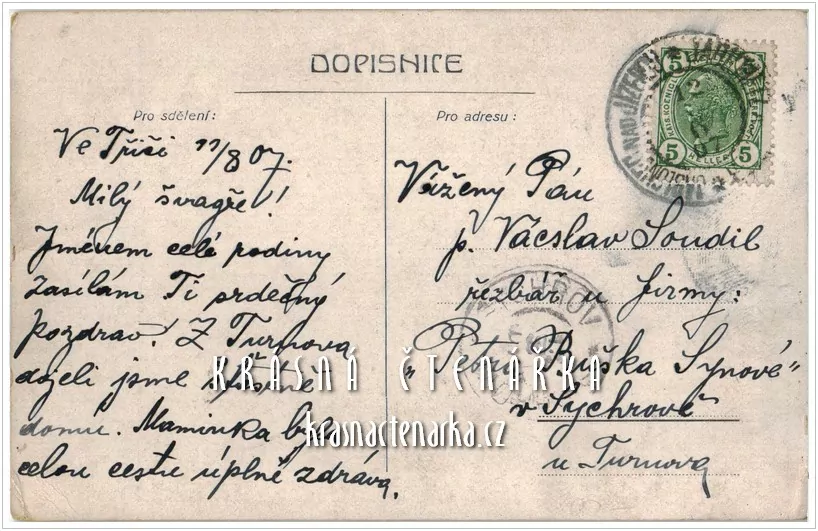 DOPISNICE
Pro sdělení:
Ve Tříši 11/8 07.
Milý švagře!
Jménem celé rodiny
Zasílám Ti srdečný
pozdrav! Z Turnova
dojeli jsme šťastně
domů. Maminka byla
celou cestu úplně zdráva.
Pro adresu:
Vážený Pán
p. Vácslav Soudil
řezbář u firmy:
"Petra Buška Synové"
v Sychrově
u Turnova
5 5
5 HELLER 5
NAD JIZEROU
SYCHROV
KRÁSNÁ ČTENÁŘKA
krasnactenarka.cz